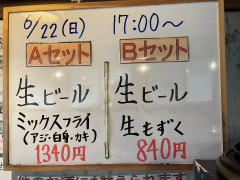 6/22(日) 17:00〜
Aセット
生ビール
ミックスフライ
(アジ・白身・カキ)
1340円
Bセット
生ビール
生もずく
840円